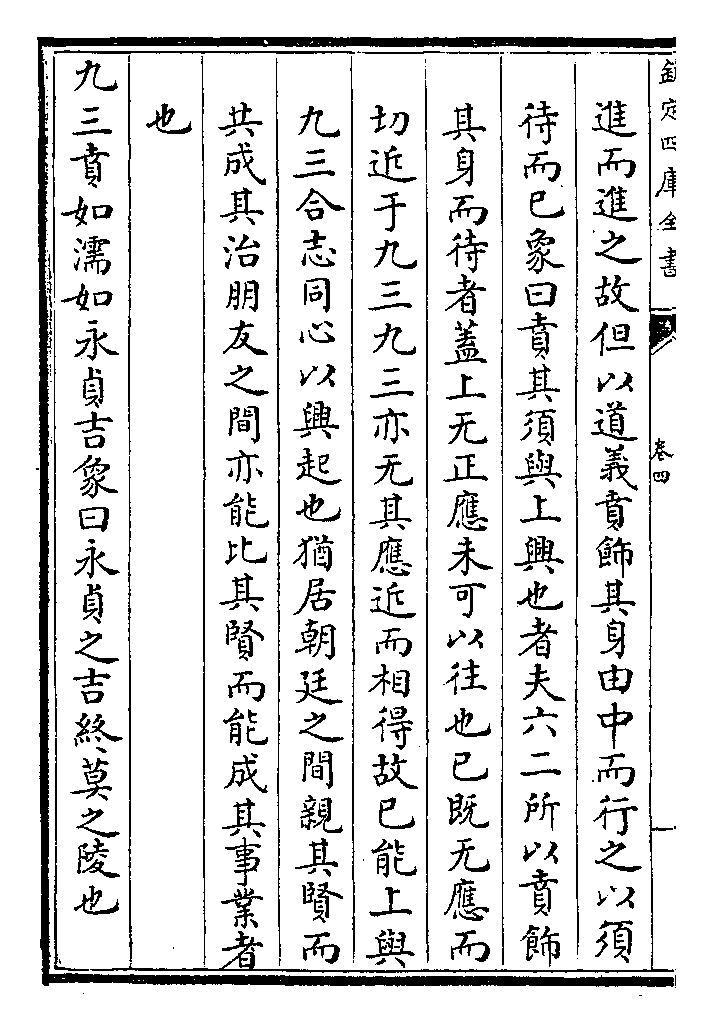 欽定四庫全書
卷四
進而進之故但以道義賁飾其身由中而行之以須
待而已象曰賁其須與上興也者夫六二所以賁飾
其身而待者蓋上无正應未可以往也已既无應而
切近于九三九三亦无其應近而相得故已能上與
九三合志同心以興起也猶居朝廷之間親其賢而
共成其治朋友之間亦能比其賢而能成其事業者
也
九三賁如濡如永貞吉象曰永貞之吉終莫之陵也